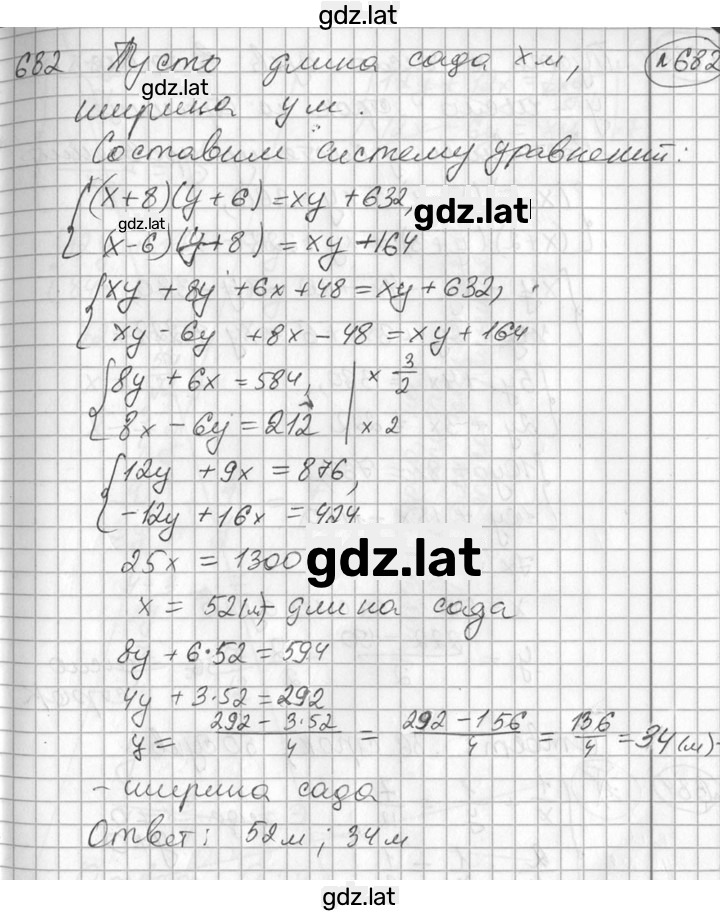 gdz.lat
682 Пусть длина сада х м, №682
gdz.lat
ширина у м.
Составим систему уравнений:
(x+8)(y+6)=xy+632,
gdz.lat
gdz.lat
(x-6)(y+8)=xy+164
xy+8y+6x+48=xy+632,
xy-6y+8x-48=xy+164
8y+6x=584, | x 3/2
8x-6y=212 | x 2
12y+9x=876,
-12y+16x=424
25x=1300
gdz.lat
x=52(м)- длина сада
8y+6·52=594
4y+3·52=292
y= (292-3·52)/4 = (292-156)/4 = 136/4 =34(м)-
- ширина сада
Ответ: 52м; 34м
gdz.lat